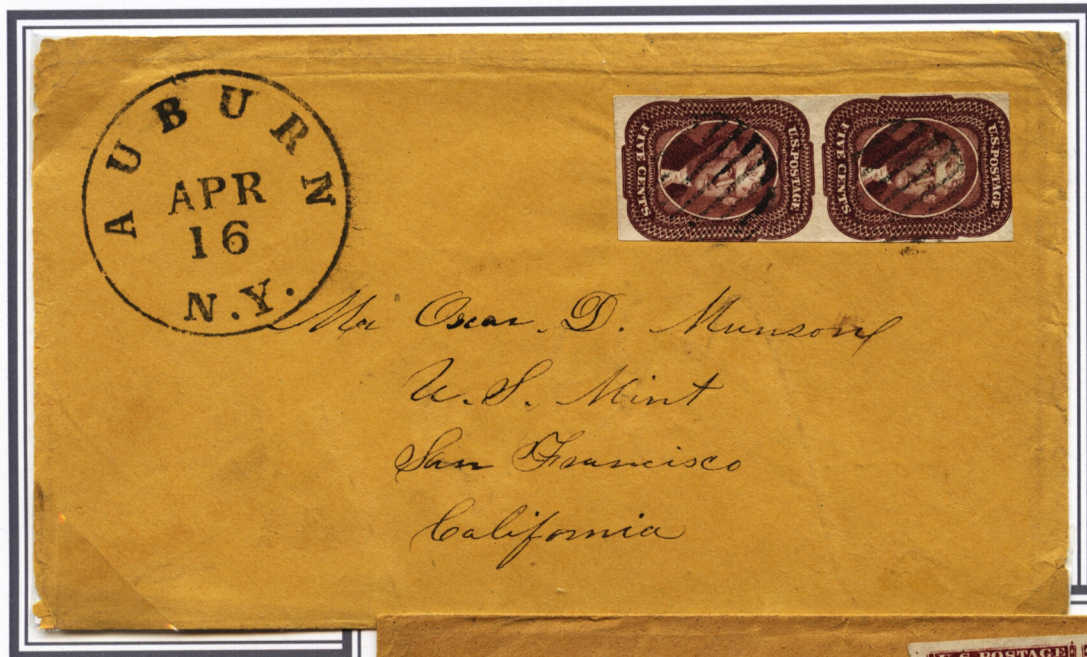 AUBURN
APR
16
N.Y.
U.S.POSTAGE
FIVE CENTS
U.S.POSTAGE
FIVE CENTS
Mr Oscar. D. Munson
U. S. Mint
San Francisco
California
U.S. POSTAGE